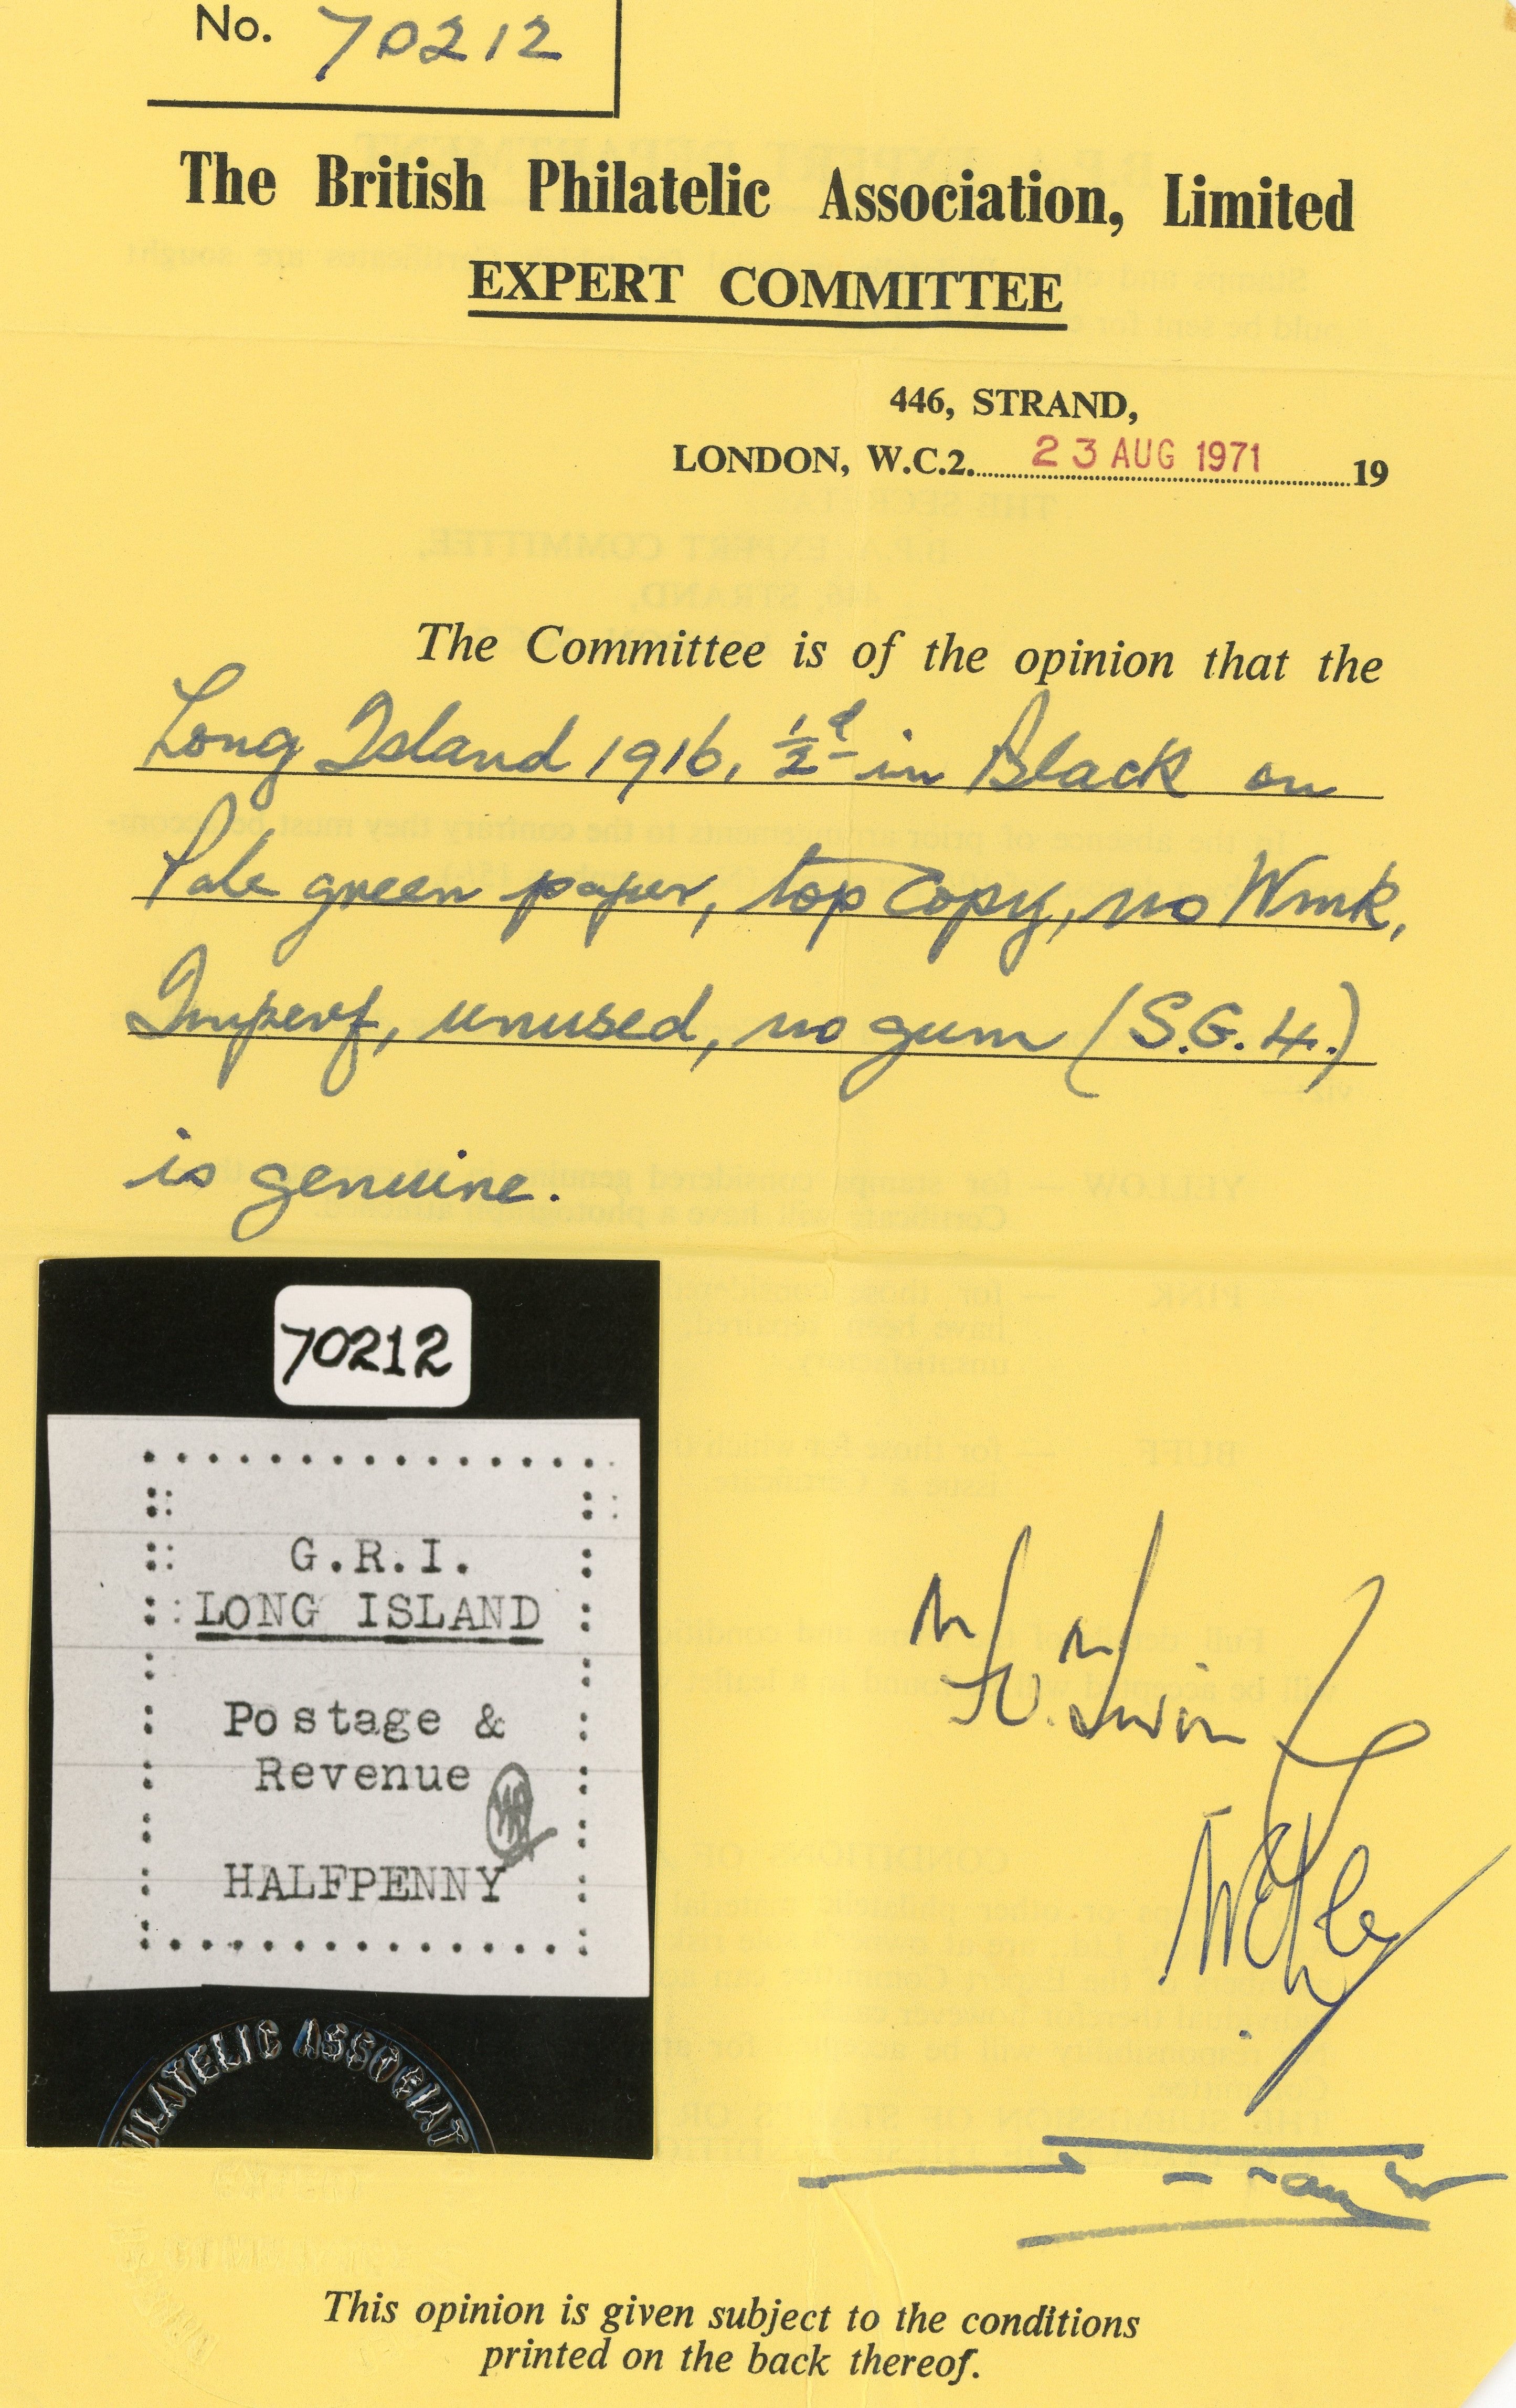 No. 70212
The British Philatelic Association, Limited
EXPERT COMMITTEE
446, STRAND,
LONDON, W.C.2. 23 AUG 1971 19
The Committee is of the opinion that the
Long Island 1916, ½d in Black on
Pale green paper, top Copy, no Wmk,
Imperf, unused, no gum (S.G. 4.)
is genuine.
70212
G.R.I.
LONG ISLAND
Postage &
Revenue
HALFPENNY
This opinion is given subject to the conditions
printed on the back thereof.